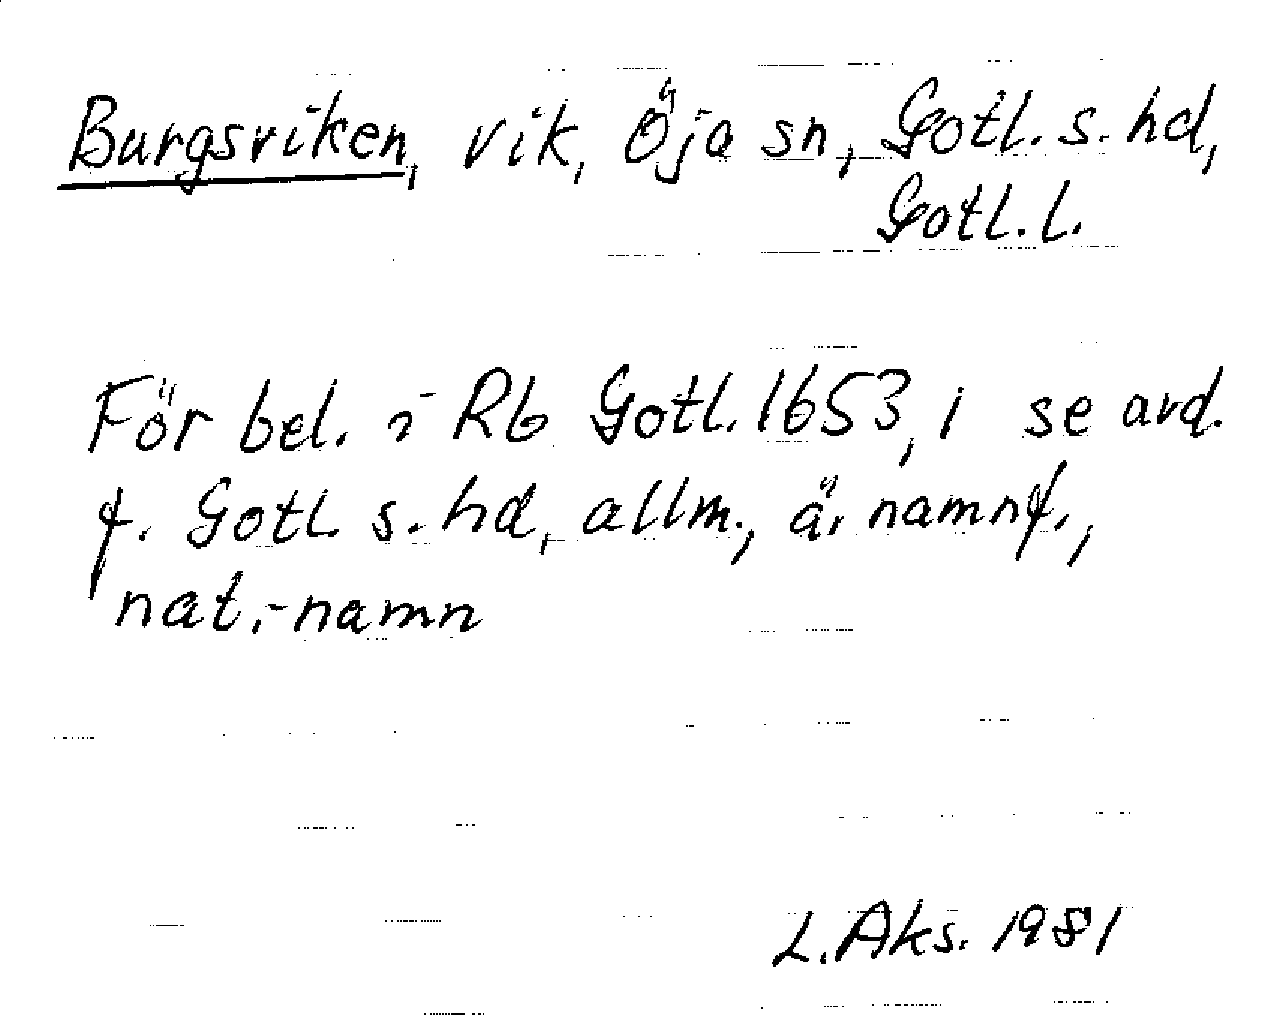 Burgsviken, vik, Öja sn, Gotl. s. hd,
Gotl. l.
För bel. i Rb Gotl. 1653, 1 se avd.
f. Gotl. s. hd, allm., ä. namnf.,
nat.-namn
L. Aks. 1981